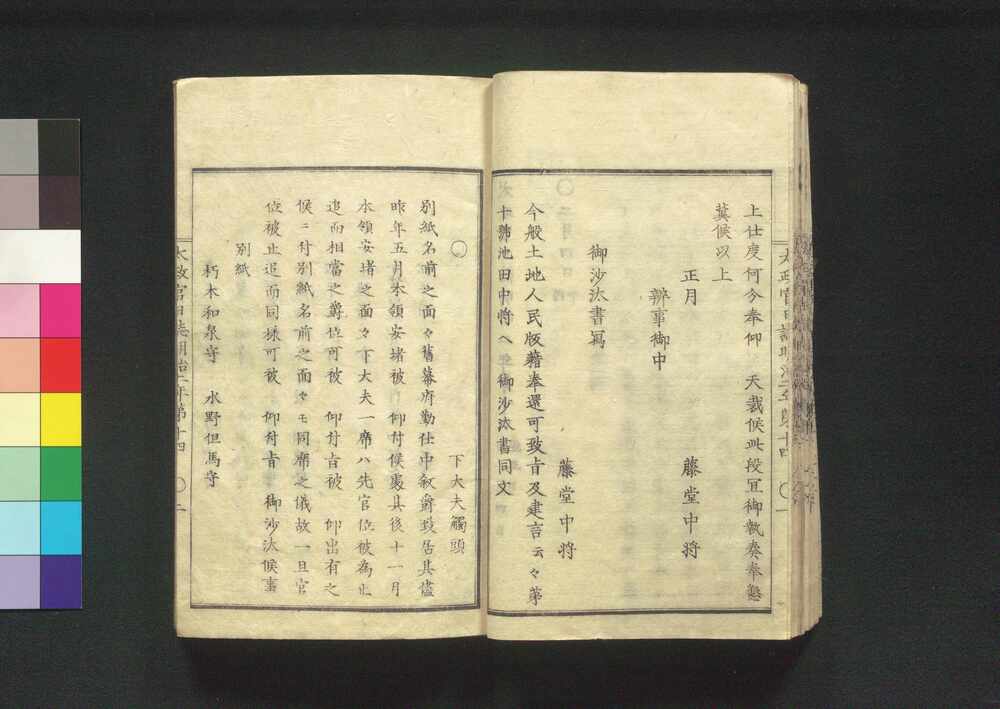 上仕度何今奉仰　天裁候此段宜御執奏奉懇
冀候以上
正月　藤堂中将
辨事御中
御沙汰書寫
藤堂中将
今般土地人民版籍奉還可致旨及建言云々第
十號池田中将ヘ　御沙汰書同文
下大夫觸頭
○
別紙名前之面々舊幕府勤仕中叙爵致居其儘
昨年五月本領安堵被　仰付候處其後十一月
本領安堵之面々下大夫一席ハ先官位被為止
追而相當之爵位可被　仰付旨被　仰出有之
候ニ付別紙名前之面々モ同席之儀故一旦官
位被止追而同様可被　仰付旨　御沙汰候事
別紙
朽木和泉守　水野但馬守
太政官日誌明治二年第十四　○二